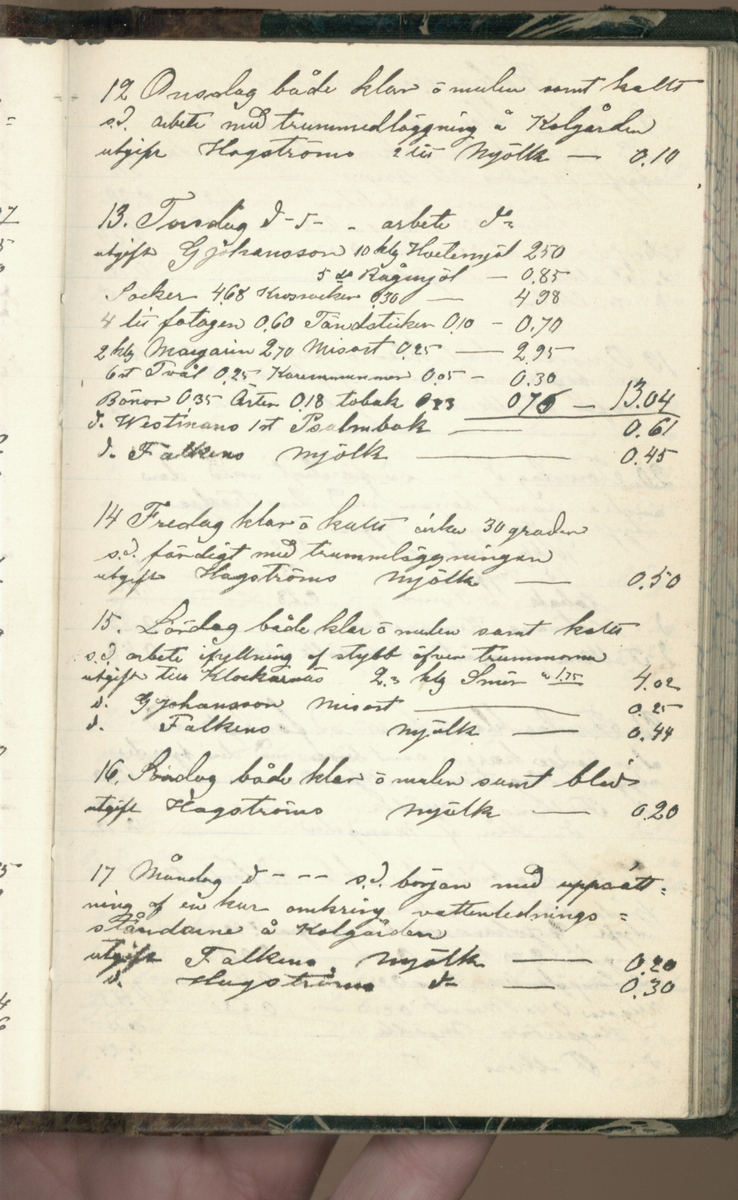 12 Onsdag både klar o mulen samt kallt
s.d. arbete med trummedläggning å Kolgården
utgift Hagströms 2 lit Mjölk — 0.10
13. Torsdag d-s- - arbete do
utgift G Johansson 10 klg Hvetemjöl 250
5 do Rågmjöl — 0.85
Socker 4.68 Krossocker 0.30 — 4 98
4 lit fotogen 0.60 Tändstickor 0.10 — 0.70
2 klg Margarin 2.70 Misost 0.25 — 2.95
6 st Tvål 0.25 Kardemummor 0.05 — 0.30
Bönor 0.35 Ärter 0.18 tobak 0.23 0 76 — 13.04
d. Westmans 1 st Psalmbok — 0.61
d. Falkens Mjölk — 0.45
14 Fredag klar o kallt cirka 30 grader
s.d. färdigt med trummläggningen
utgift Hagströms Mjölk — 0.50
15. Lördag både klar o mulen samt kallt
s.d. arbete ifyllning af stybb öfver trummorna
utgift till Klockarnäs 2.3 klg Smör a 1.75 4.02
d. G Johansson Misost — 0.25
d. Falkens Mjölk — 0.44
16. Söndag både klar o mulen samt blid
utgift Hagströms Mjölk — 0.20
17 Måndag d - - - s.d. börjān med uppsätt=
ning af en kur omkring vattenlednings=
ståndarne å Kolgården
utgift Falkens Mjölk — 0.20
d. Hagströms do — 0.30